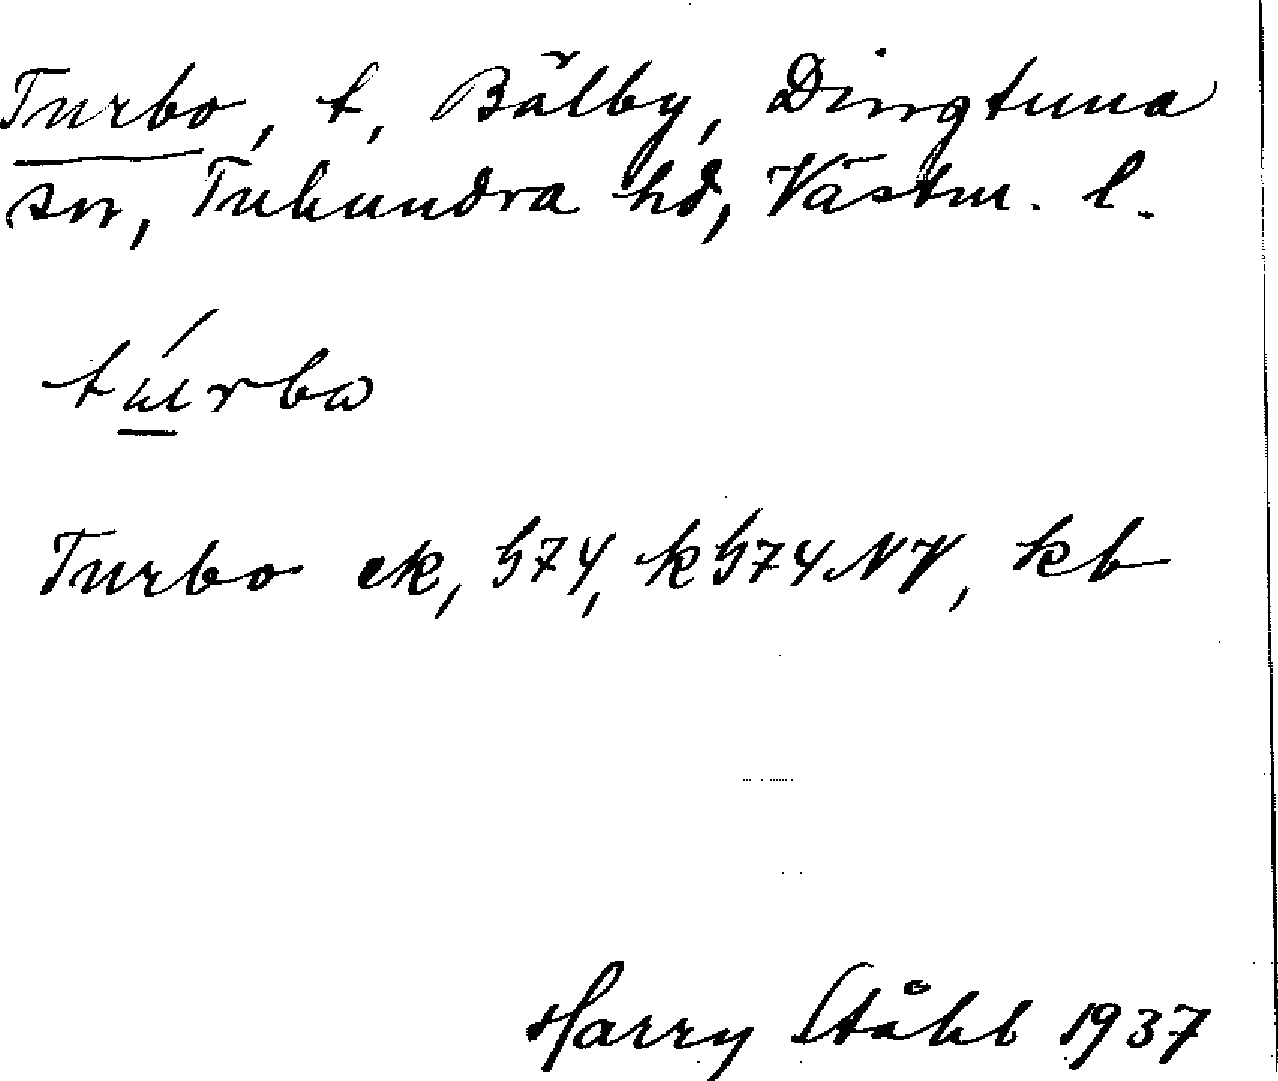 Turbo, t, Bälby, Dingtuna
sn, Tuhundra hd, Västm. l.
túrbω
Turbo ek, h74, k h74NV, kb
Harry Ståhl 1937